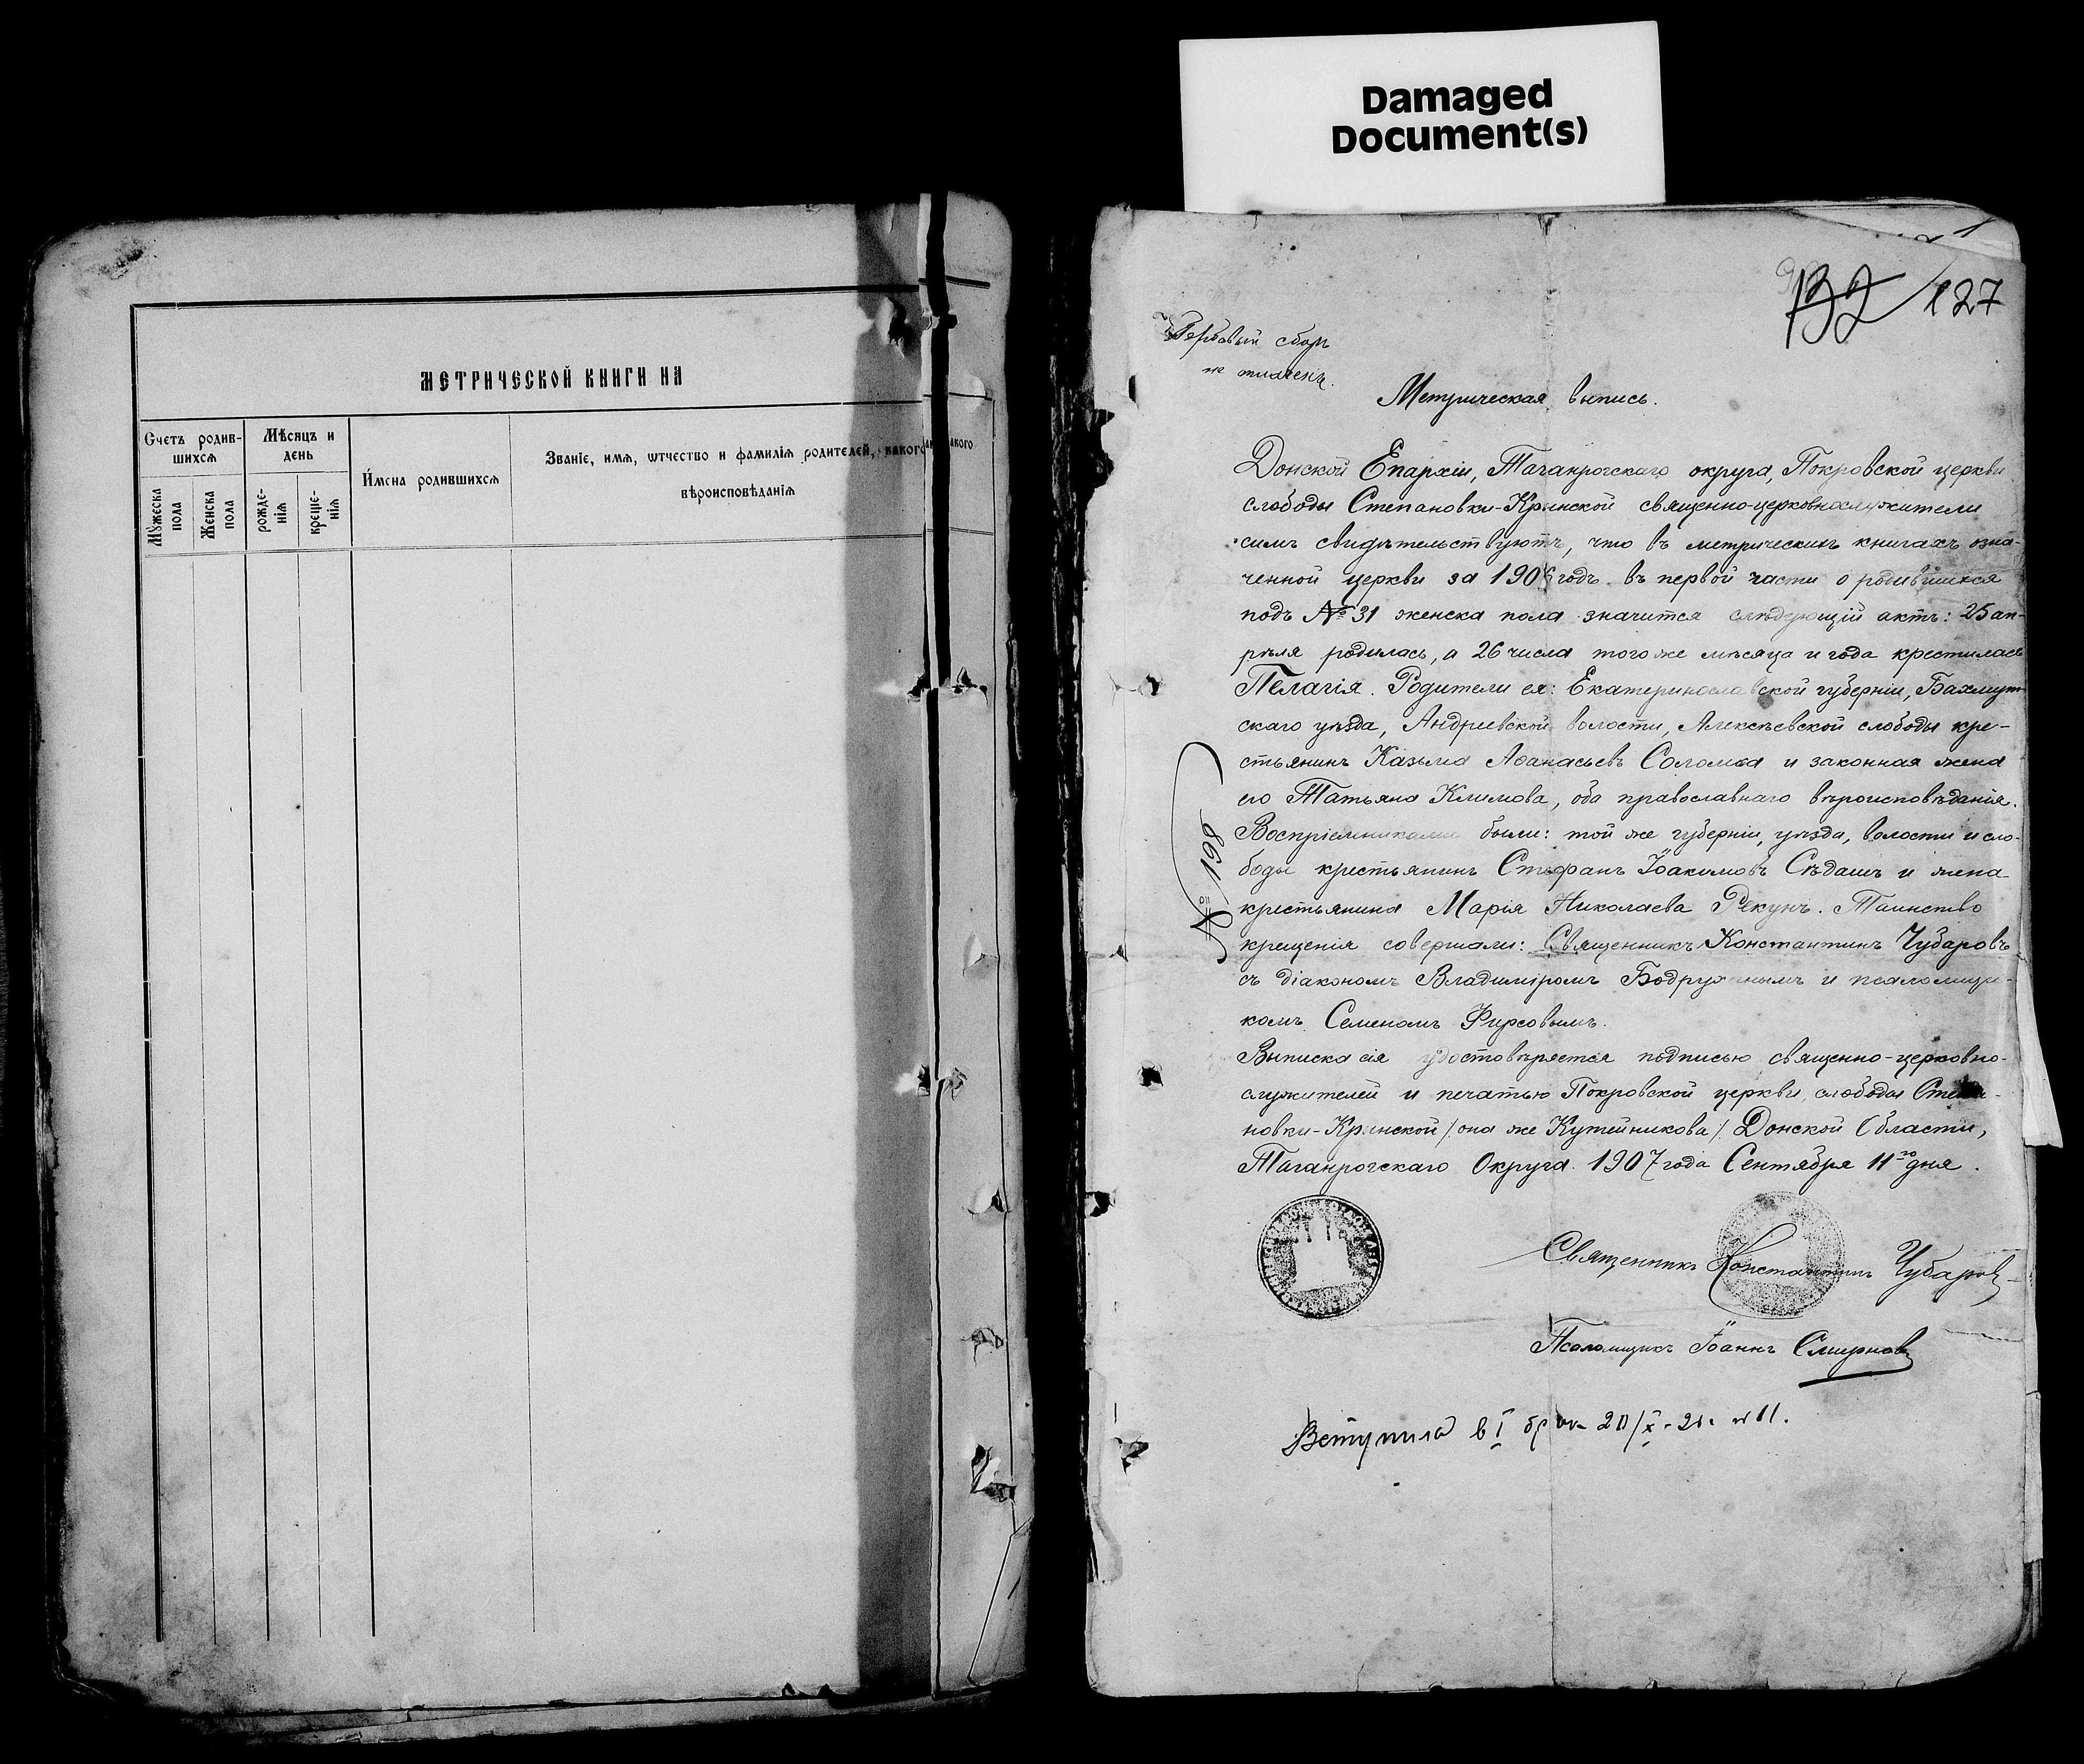 Damaged
Document(s)
МЕТРИЧЕСКОЙ КНИГИ НА
Счетъ родив-
шихсѧ
Мѣсѧцъ и
день
Имена родившихсѧ
Званіе, имѧ, ѡтчество и фамиліѧ родителей, какого
вѣроисповѣданіѧ
Мужеска
пола
Женска
пола
рожде-
ніѧ
креще-
ніѧ
акого
132 127
Гербовый сборъ
не оплаченъ.
Метрическая выпись.
Донской Епархіи, Таганрогскаго округа, Покровской церкви
слободы Степановки-Крынской священно-церковнослужители
симъ свидѣтельствуютъ, что въ метрическихъ книгахъ озна-
ченной церкви за 1906 годъ въ первой части о родившихся
подъ № 31 женска пола значится слѣдующій актъ: 25 ап-
рѣля родилась, а 26 числа того же мѣсяца и года крестилась
Пелагія. Родители ея: Екатеринославской губерніи, Бахмут-
скаго уѣзда, Андреевской волости, Алексѣевской слободы кре-
стьянинъ Казьма Аѳанасьевъ Соломка и законная жена
его Татьяна Климова, оба православнаго вѣроисповѣданія.
Воспріемниками были: той же губерніи, уѣзда, волости и сло-
боды крестьянинъ Стефанъ Іоакимовъ Сѣдашъ и жена
крестьянина Марія Николаева Рекунъ. Таинство
крещенія совершали: Священникъ Константинъ Чубаровъ
съ діакономъ Владиміромъ и псаломщи-
комъ Семеномъ Фирсовымъ.
Выписка сія удостовѣряется подписью священно-церковно-
служителей и печатью Покровской церкви, слободы Степа-
новки-Крынской /она же Кутейникова/ Донской Области,
Таганрогскаго Округа. 1907 года Сентября 11го дня.
№ 198
Священникъ Константинъ Чубаровъ
Псаломщикъ Іоаннъ Смирновъ
Вступила в I бр 20/X - 21. № 11.